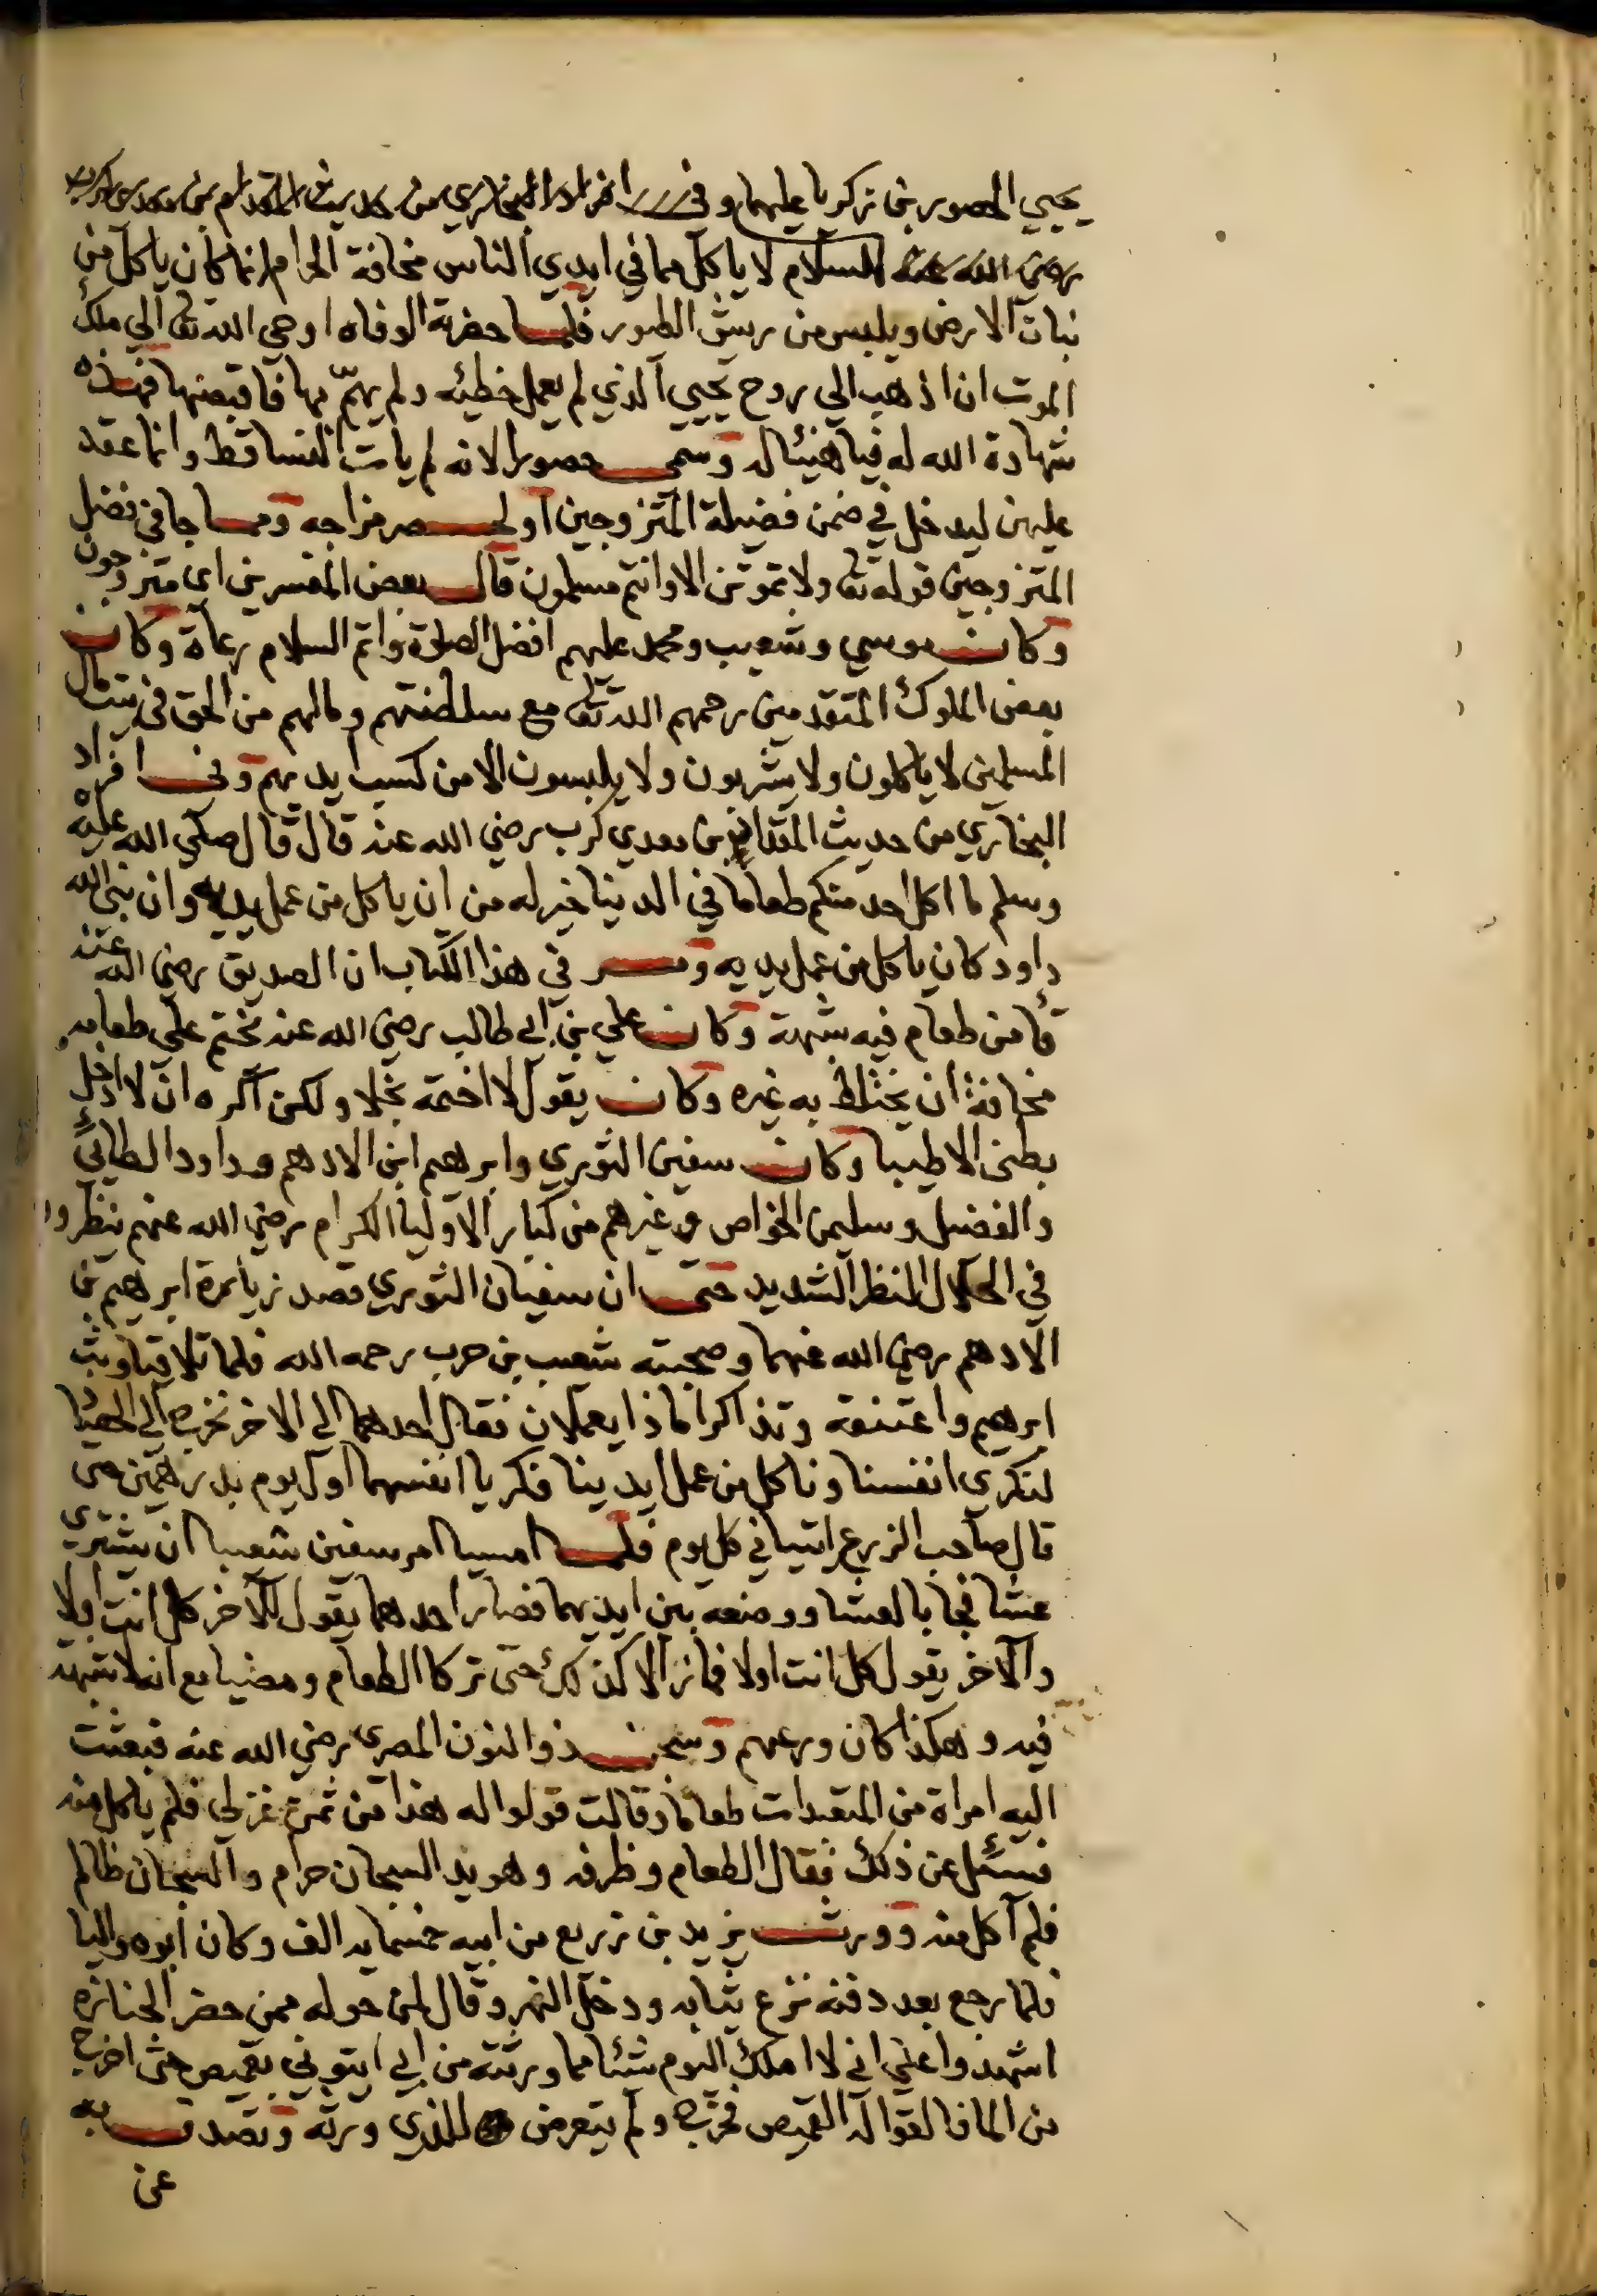 يحيي الحصور بن زكريا عليهما وفي افراد البخاري من حديث المقدام بن معدي كرب
رضي الله عنه السلام لا ياكل مما في ايدي الناس مخافة الحرام انما كان ياكل من
نبات الارض ويلبس من ريش الطيور فلما حضرته الوفاه اوحي الله تعا الي ملك
الموت ان اذهب الي روح يحيي الذي لم يعمل خطيئه ولم يهمّ بها فاقبضها فهذه
شهادة الله له فيا هنيئا له وسمي حصورا لانه لم يات النسا قط وانما عقد
عليهن ليدخل في ضمن فضيلة المتزوجين او لحصر مزاجه ومما جا في فضل
المتزوجين قوله تعا ولا تموتن الا وانتم مسلمون قال بعض المفسرين اى متزوجون
وكان موسي وشعيب ومحمد عليهم افضل الصلوة واتم السلام رعاة وكان
بعض الملوك المتقدمين رحمهم الله تعا مع سلطنتهم ومالهم من الحق في بيت مال
المسلمين لا ياكلون ولا يشربون ولا يلبسون الا من كسب ايديهم وفي افراد
البخاري من حديث المقدام بن معدي كرب رضي الله عنه قال قال صلي الله عليه
وسلم ما اكل احد منكم طعاما في الدنيا خير له من ان ياكل من عمل يديه وان نبي الله
داود كان ياكل من عمل يديه ومر في هذا الكتاب ان الصديق رضي الله عنه
قأ من طعام فيه شبهة وكان علي بن ابي طالب رضي الله عنه يختم علي طعامه
مخافة ان يختلط به غيره وكان يقول لا اختمه بخلا ولكن اكره ان لا ادخل
بطني الا طيبا وكان سفين الثوري وابرهيم ابن الادهم وداود الطائي
والفضيل وسليمن الخواص وغيرهم من كبار الاوليا الكرام رضي الله عنهم ينظروا
في الحلال النظر الشديد حتي ان سفيان الثوري قصد زيارة ابرهيم بن
الادهم رضي الله عنهما وصحبته شعيب بن حرب رحمه الله فلما تلاقيا وثب
ابرهيم واعتنقه وتذاكرا ماذا يعملان فقال احدهما الي الاخر نخرج الي الحصيد
لنكري انفسنا وناكل من عمل ايدينا فكريا انفسهما اول يوم بدرهمين حتى
قال صاحب الزرع ايتيا في كل يوم فلما امسيا امر سفين شعيبا ان يشتري
عشا فجا بالعشا ووضعه بين ايديهما فصار احدهما يقول للآخر كل انت اولا
والآخر يقول كل انت اولا فما زالا كذلك حتي تركا الطعام ومضيا مع انه لا شبهة
فيه وهكذا كان ورعهم وسجن ذو النون المصري رضي الله عنه فبعثت
اليه امراة من المتعبدات طعاما وقالت قولوا له هذا من ثمن غزلي فلم ياكل منه
فسئل عن ذلك فقال الطعام وظرفه وهو يد السجان حرام والسجان ظالم
فلم آكل منه وورث يزيد بن زريع من ابيه خمسمايه الف وكان ابوه واليا
فلما رجع بعد دفنه نزع ثيابه ودخل النهر وقال لمن حوله ممن حضر الجنازه
اشهدوا علي اني لا املك اليوم شئا مما ورثته من ابي ايتوني بقميص حتى اخرج
من الما فالقوا له القميص فخرج ولم يتعرض للذي ورثه وتصدق به
عن